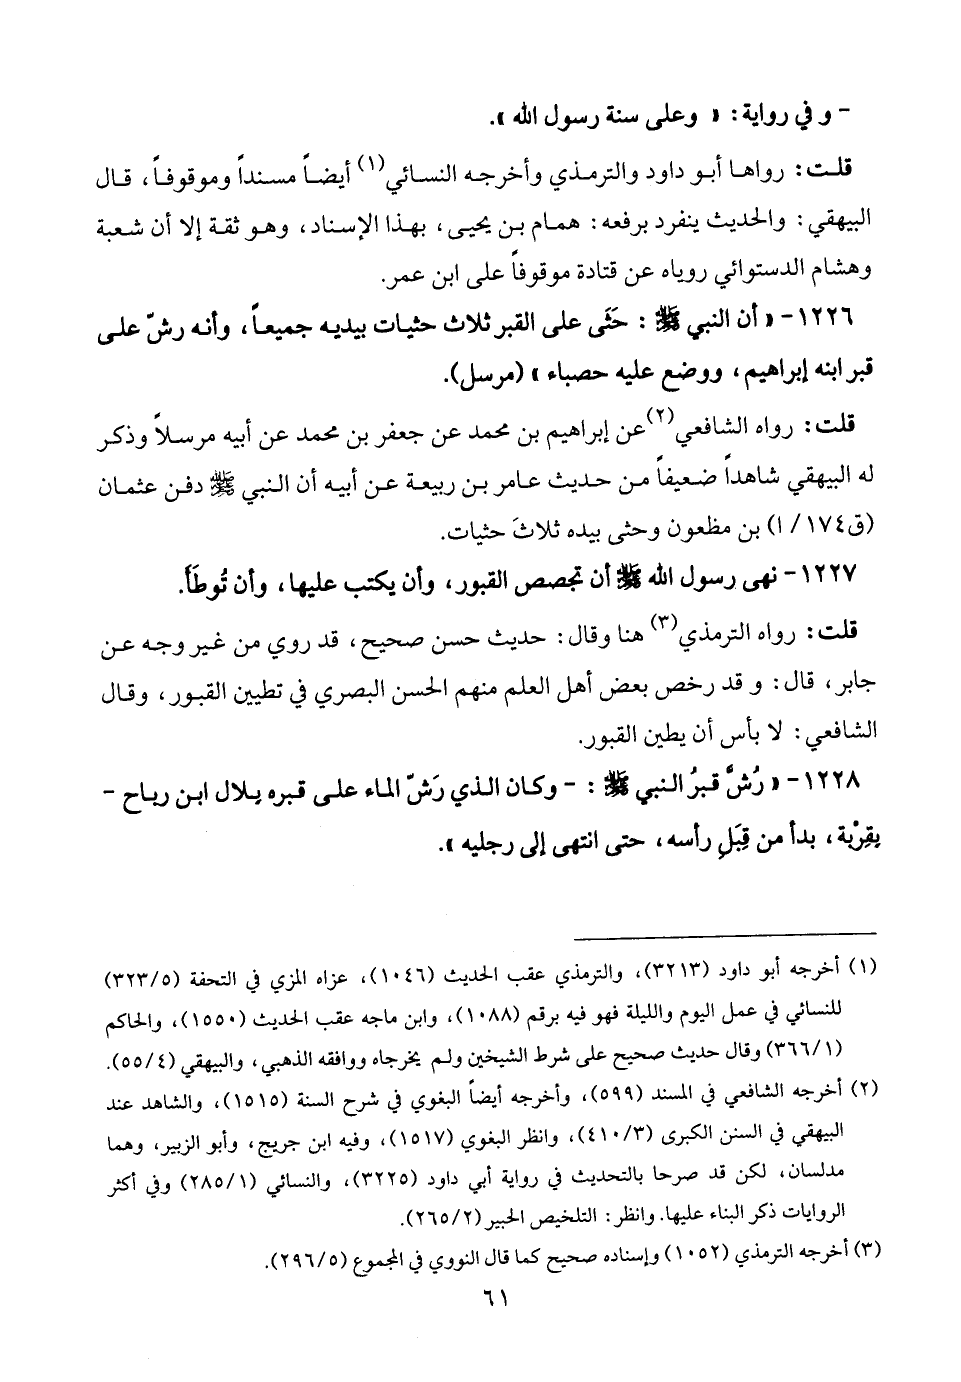 - و في رواية: « وعلى سنة رسول الله ».
قلت: رواها أبو داود والترمذي وأخرجه النسائي(١) أيضاً مسنداً وموقوفاً، قال
البيهقي: والحديث ينفرد برفعه: همام بن يحيى، بهذا الإسناد، وهو ثقة إلا أن شعبة
وهشام الدستوائي روياه عن قتادة موقوفاً على ابن عمر.
١٢٢٦- « أن النبي ﷺ : حَثَى على القبر ثلاث حثيات بيديه جميعاً، وأنه رشّ على
قبر ابنه إبراهيم، ووضع عليه حصباء » (مرسل).
قلت: رواه الشافعي(٢) عن إبراهيم بن محمد عن جعفر بن محمد عن أبيه مرسلاً وذكر
له البيهقي شاهداً ضعيفاً من حديث عامر بن ربيعة عن أبيه أن النبي ﷺ دفن عثمان
(ق١٧٤/ ا) بن مظعون وحثى بيده ثلاثَ حثيات.
١٢٢٧- نهى رسول الله ﷺ أن تجصص القبور، وأن يكتب عليها، وأن تُوطَأَ.
قلت: رواه الترمذي(٣) هنا وقال: حديث حسن صحيح، قد روي من غير وجه عن
جابر، قال: و قد رخص بعض أهل العلم منهم الحسن البصري في تطيين القبور، وقال
الشافعي: لا بأس أن يطين القبور.
١٢٢٨- « رُشَّ قبرُ النبي ﷺ : - وكان الذي رَشّ الماء على قبره بلال ابن رباح -
بِقِرْبة، بدأ من قِبَلِ رأسه، حتى انتهى إلى رجليه ».
(١) أخرجه أبو داود (٣٢١٣)، والترمذي عقب الحديث (١٠٤٦)، عزاه المزي في التحفة (٣٢٣/٥)
للنسائي في عمل اليوم والليلة فهو فيه برقم (١٠٨٨)، وابن ماجه عقب الحديث (١٥٥٠)، والحاكم
(٣٦٦/١) وقال حديث صحيح على شرط الشيخين ولم يخرجاه ووافقه الذهبي، والبيهقي (٥٥/٤).
(٢) أخرجه الشافعي في المسند (٥٩٩)، وأخرجه أيضاً البغوي في شرح السنة (١٥١٥)، والشاهد عند
البيهقي في السنن الكبرى (٤١٠/٣)، وانظر البغوي (١٥١٧)، وفيه ابن جريج، وأبو الزبير، وهما
مدلسان، لكن قد صرحا بالتحديث في رواية أبي داود (٣٢٢٥)، والنسائي (٢٨٥/١) وفي أكثر
الروايات ذكر البناء عليها. وانظر: التلخيص الحبير (٢٦٥/٢).
(٣) أخرجه الترمذي (١٠٥٢) وإسناده صحيح كما قال النووي في المجموع (٢٩٦/٥).
٦١